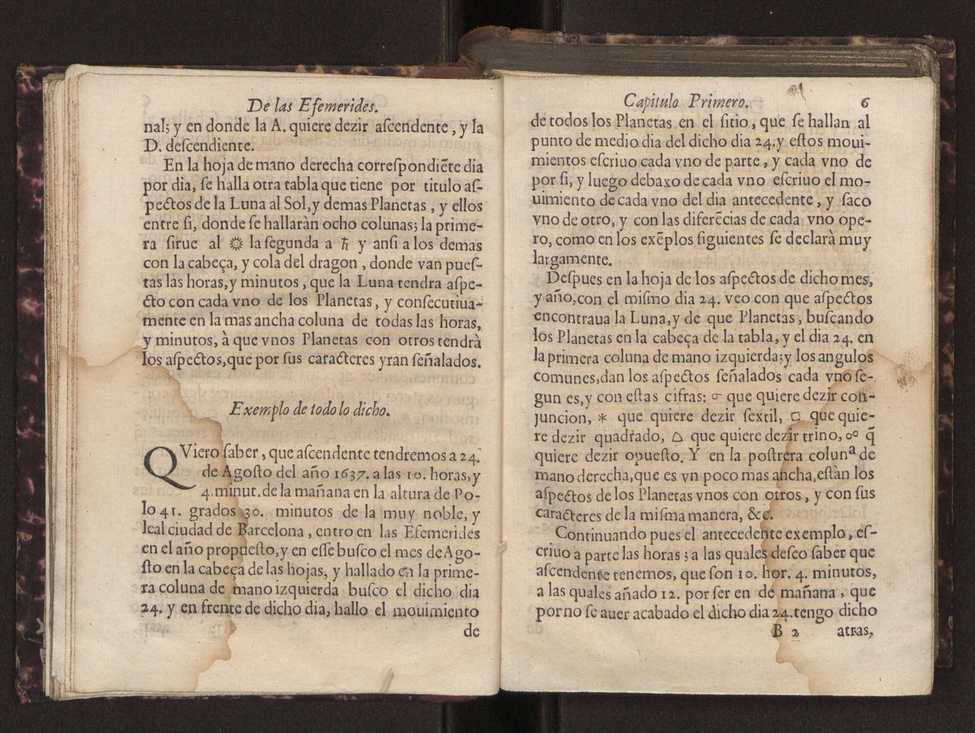 De las Efemerides.
nal; y en donde la A. quiere dezir ascendente, y la
D. descendiente.
En la hoja de mano derecha correspondiẽte dia
por dia, se halla otra tabla que tiene por titulo as-
pectos de la Luna al Sol, y demas Planetas, y ellos
entre si, donde se hallaràn ocho colunas; la prime-
ra sirue al ☼ la segunda a ♄ y ansi a los demas
con la cabeça, y cola del dragon, donde van pues-
tas las horas, y minutos, que la Luna tendra aspe-
cto con cada vno de los Planetas, y consecutiua-
mente en la mas ancha coluna de todas las horas,
y minutos, à que vnos Planetas con otros tendrà
los aspectos, que por sus caracteres yran señalados.
Exemplo de todo lo dicho.
QViero saber, que ascendente tendremos a 24.
de Agosto del año 1637. a las 10. horas, y
4. minut. de la mañana en la altura de Po-
lo 41. grados 30. minutos de la muy noble, y
leal ciudad de Barcelona, entro en las Efemerides
en el año propuesto, y en esse busco el mes de Ago-
sto en la cabeça de las hojas, y hallado en la prime-
ra coluna de mano izquierda busco el dicho dia
24. y en frente de dicho dia, hallo el mouimiento
de
Capitulo Primero. 6
de todos los Planetas en el sitio, que se hallan al
punto de medio dia del dicho dia 24. y estos moui-
mientos escriuo cada vno de parte, y cada vno de
por si, y luego debaxo de cada vno escriuo el mo-
uimiento de cada vno del dia antecedente, y saco
vno de otro, y con las diferẽcias de cada vno ope-
ro, como en los exẽplos siguientes se declarà muy
largamente.
Despues en la hoja de los aspectos de dicho mes,
y año, con el mismo dia 24. veo con que aspectos
encontraua la Luna, y de que Planetas, buscando
los Planetas en la cabeça de la tabla, y el dia 24. en
la primera coluna de mano izquierda; y los angulos
comunes, dan los aspectos señalados cada vno se-
gun es, y con estas cifras: ☌ que quiere dezir con-
juncion, ✶ que quiere dezir sextil, □ que quie-
re dezir quadrado, △ que quiere dezir trino, ☍ q̃
quiere dezir opuesto. Y en la postrera coluna de
mano derecha, que es vn poco mas ancha, estàn los
aspectos de los Planetas vnos con otros, y con sus
caracteres de la misma manera, &c.
Continuando pues el antecedente exemplo, es-
criuo a parte las horas; a las quales deseo saber que
ascendente tenemos, que son 10. hor. 4. minutos,
a las quales añado 12. por ser en de mañana, que
por no se auer acabado el dicho dia 24. tengo dicho
B 2 atras,